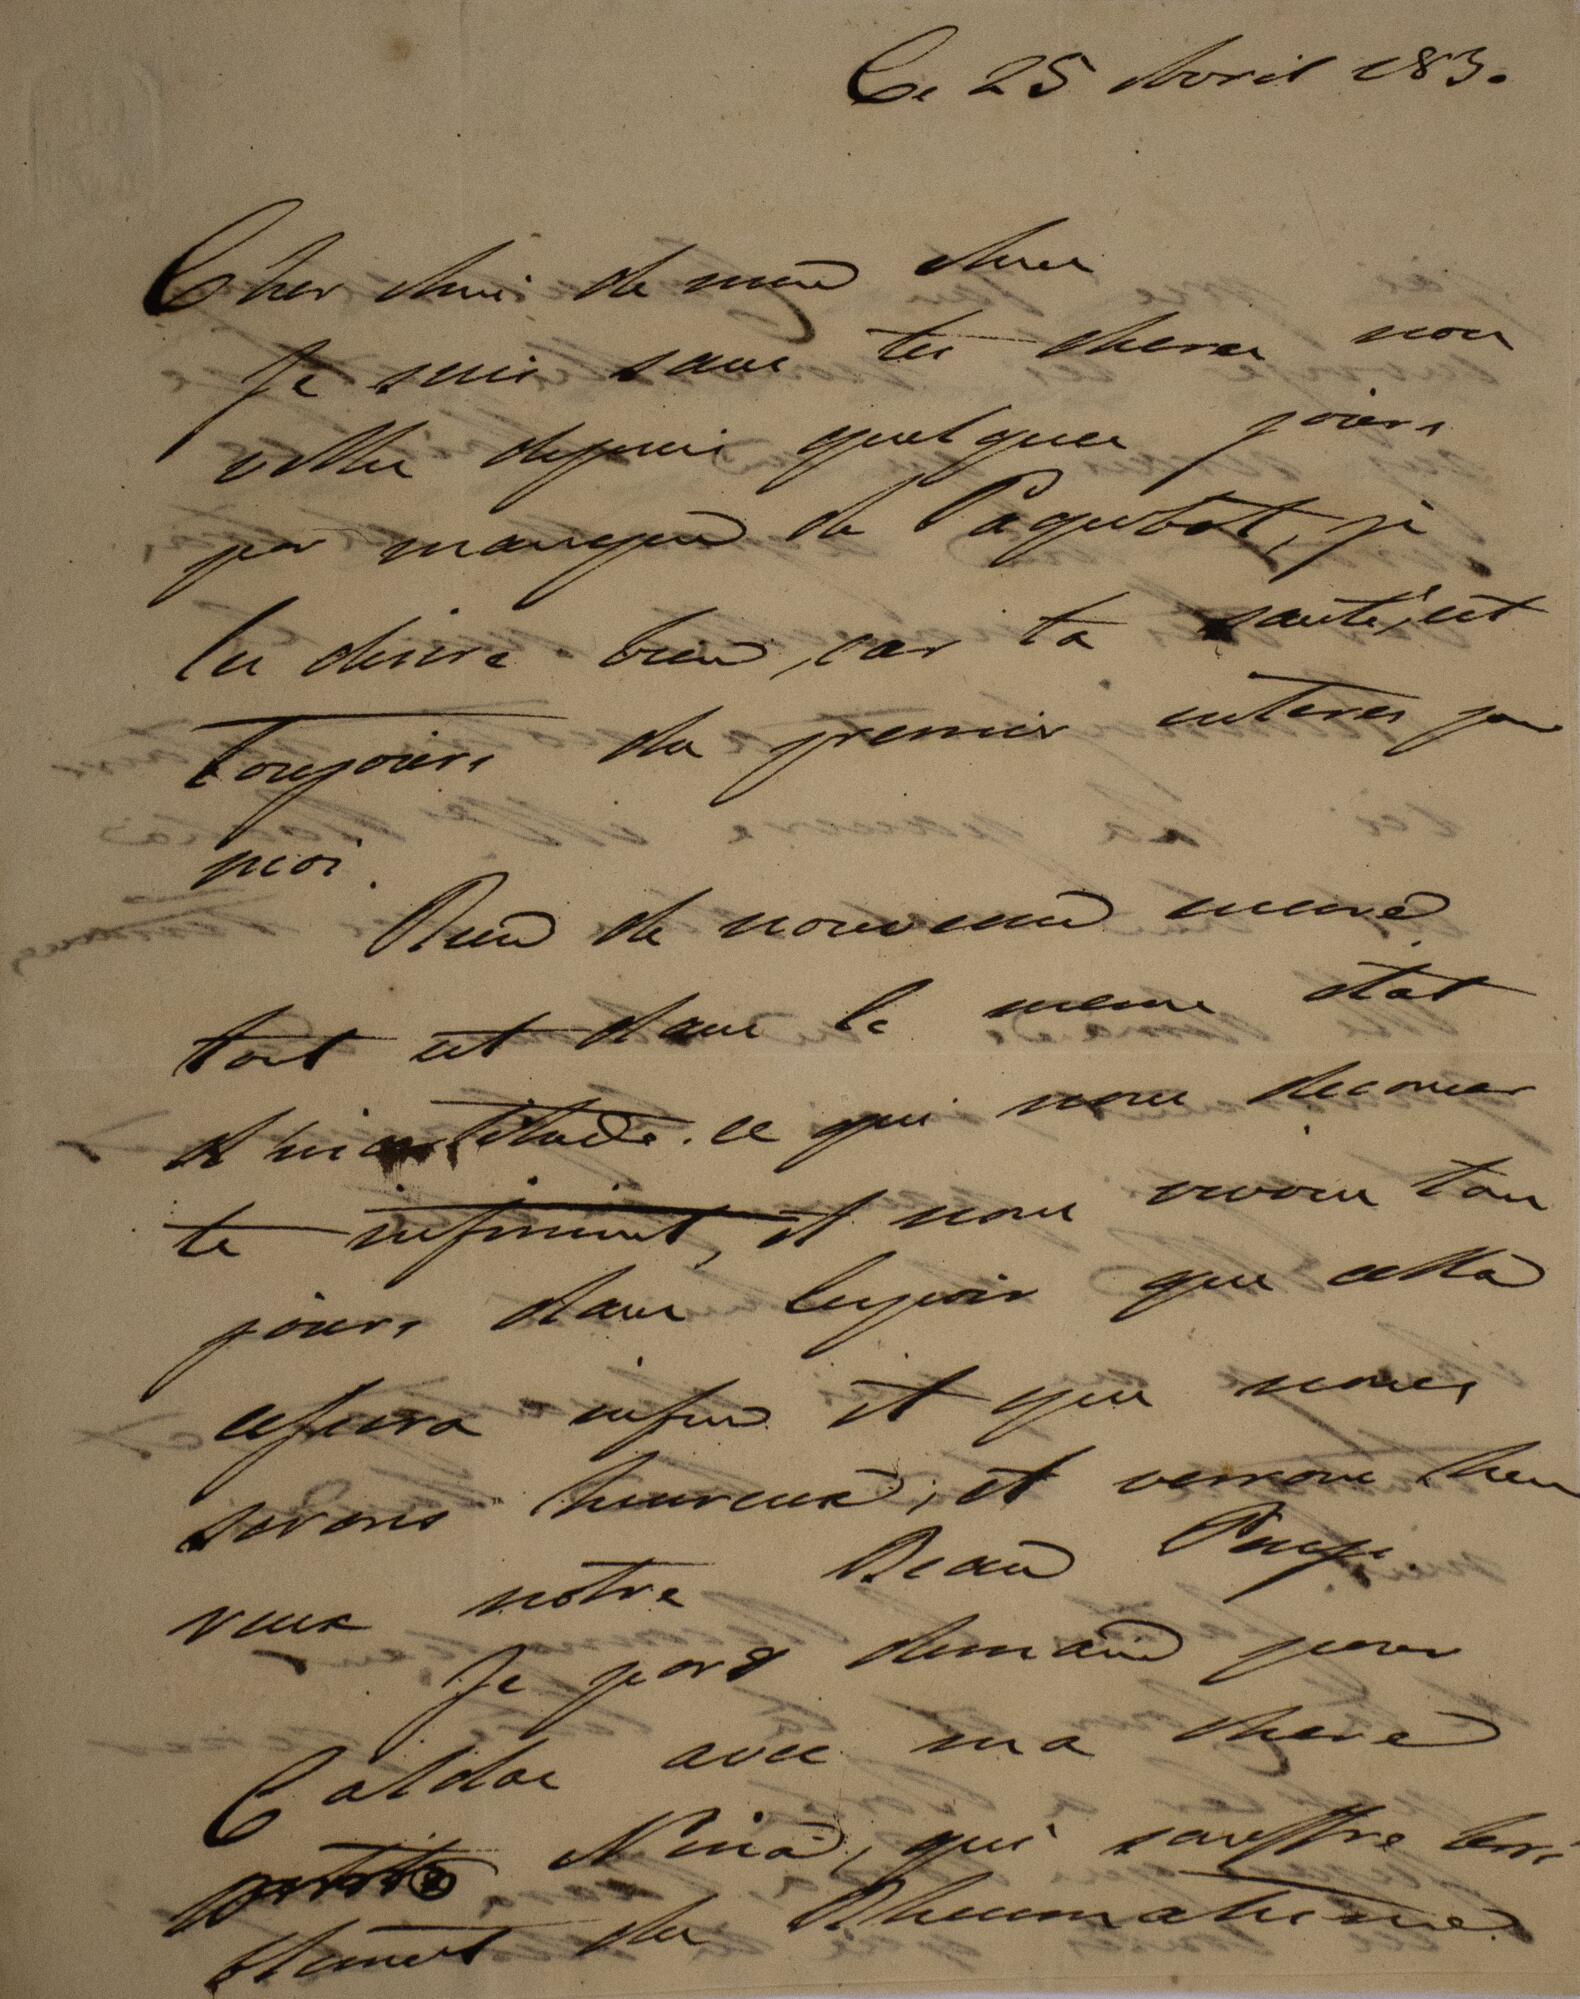 Ce 25 Avril 183.
Cher Ami de mon Ame
Je suis sans tes cheres nou
velles depuis quelques jours
par manque de Paquebot, je
les desire bien, car ta santé, est
toujours du premier interes pour
moi.
Rien de nouveau encore
tout est dans le meme état
d'incertitude. ce qui nous deconcer
te infiniment, et nous vivons tou
jours dans l'espoir que cella
cefinira infin et que nous
serons heureux, et verrons heu
reux notre Beau Pays.
Je pars demain pour
Caldas avec ma chere
petite Nina, qui souffre terri
blement du Rheumatisme.